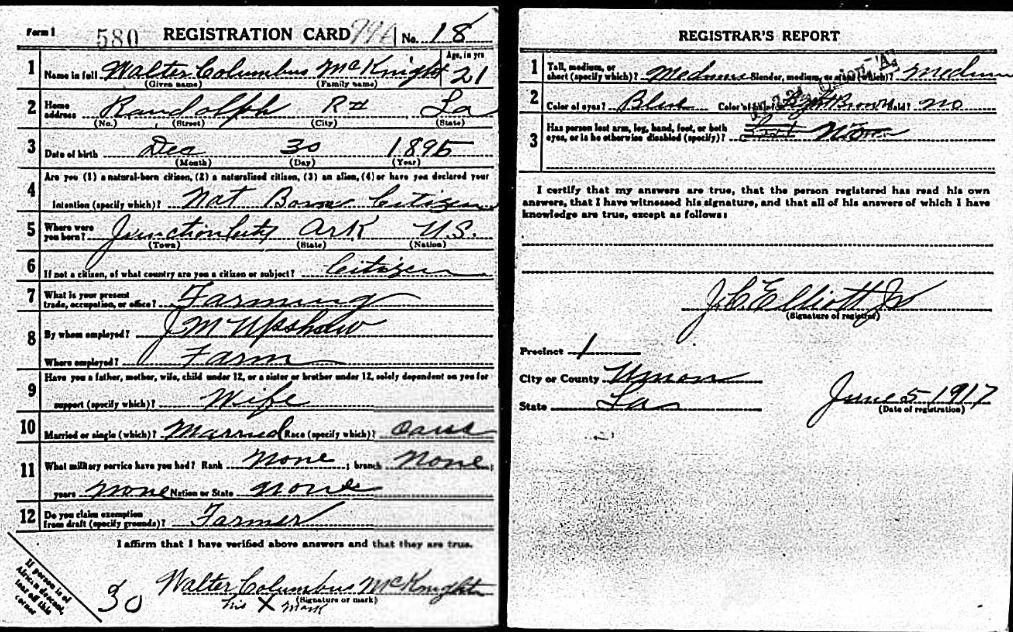 Form 1 580 REGISTRATION CARD No. 18
1 Name in full Walter Columbus McKnight Age, in yrs 21
(Given name) (Family name)
2 Home address Randolph R# La
(No.) (Street) (City) (State)
3 Date of birth Dec 30 1895
(Month) (Day) (Year)
4 Are you (1) a natural-born citizen, (2) a naturalized citizen, (3) an alien, (4) or have you declared your
intention (specify which)? Nat Born Citizen
5 Where were you born? Junction City Ark U.S.
(Town) (State) (Nation)
6 If not a citizen, of what country are you a citizen or subject? Citizen
7 What is your present trade, occupation, or office? Farming
8 By whom employed? J M Upshaw
Where employed? Farm
9 Have you a father, mother, wife, child under 12, or a sister or brother under 12, solely dependent on you for
support (specify which)? Wife
10 Married or single (which)? Married Race (specify which)? Caus
11 What military service have you had? Rank None ; branch None ;
years None Nation or State None
12 Do you claim exemption from draft (specify grounds)? Farmer
I affirm that I have verified above answers and that they are true.
Walter Columbus McKnight
(Signature or mark)
his X mark
If person is of
African descent,
tear off this
corner
30
REGISTRAR'S REPORT
1 Tall, medium, or short (specify which)? Medium Slender, medium, or stout (which)? Medium
2 Color of eyes? Blue Color of hair? Brown Bald? No
3 Has person lost arm, leg, hand, foot, or both
eyes, or is he otherwise disabled (specify)? Non
I certify that my answers are true, that the person registered has read his own
answers, that I have witnessed his signature, and that all of his answers of which I have
knowledge are true, except as follows:
J.C. Elliott Jr
(Signature of registrar)
Precinct 1
City or County Union
State La
June 5 1917
(Date of registration)